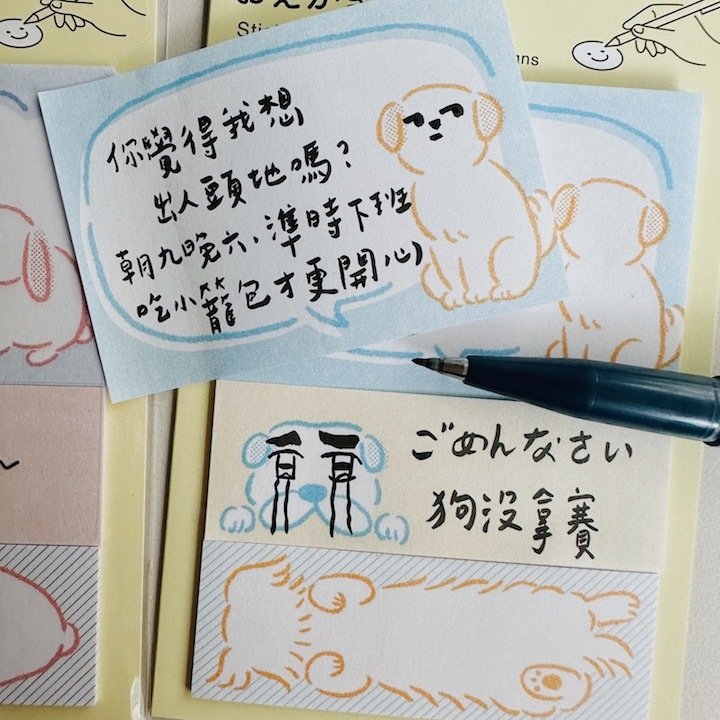 Sti
ns
你覺得我想
出人頭地嗎？
朝九晚六、準時下班
吃小籠包才更開心
ごめんなさい
狗沒拿賽